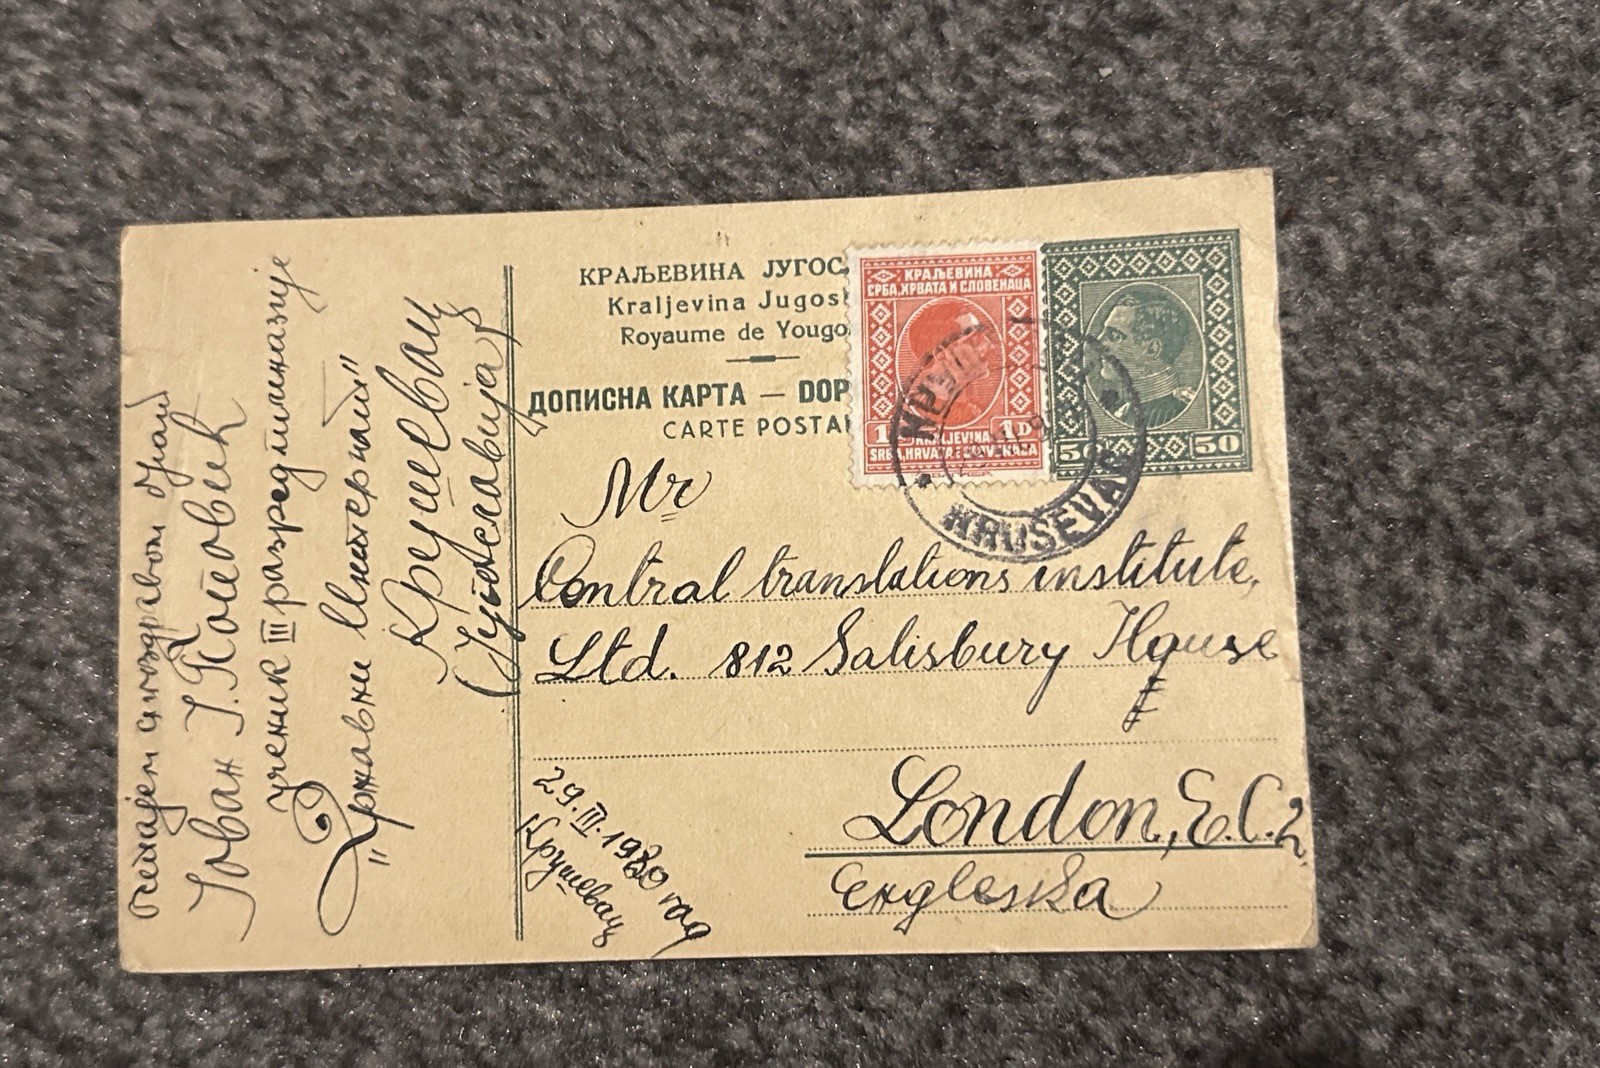 КРАЉЕВИНА ЈУГОС
Kraljevina Jugosl
Royaume de Yougo
ДОПИСНА КАРТА — DOP
CARTE POSTAL
КРАЉЕВИНА
СРБА, ХРВАТА И СЛОВЕНАЦА
1 1D
KRALJEVINA
SRBA, HRVATA I SLOVENACA
50 50
KRUŠEVAC
Mr
Central translations institute,
Ltd. 812 Salisbury House
London, E.C.2,
Engleska
29.III.1930 год
Крушевац
Остајем с поздравом
Јован Ј. Поповић
ученик III разред гимназије
"Државни Интернат"
Крушевац
(Југославија)